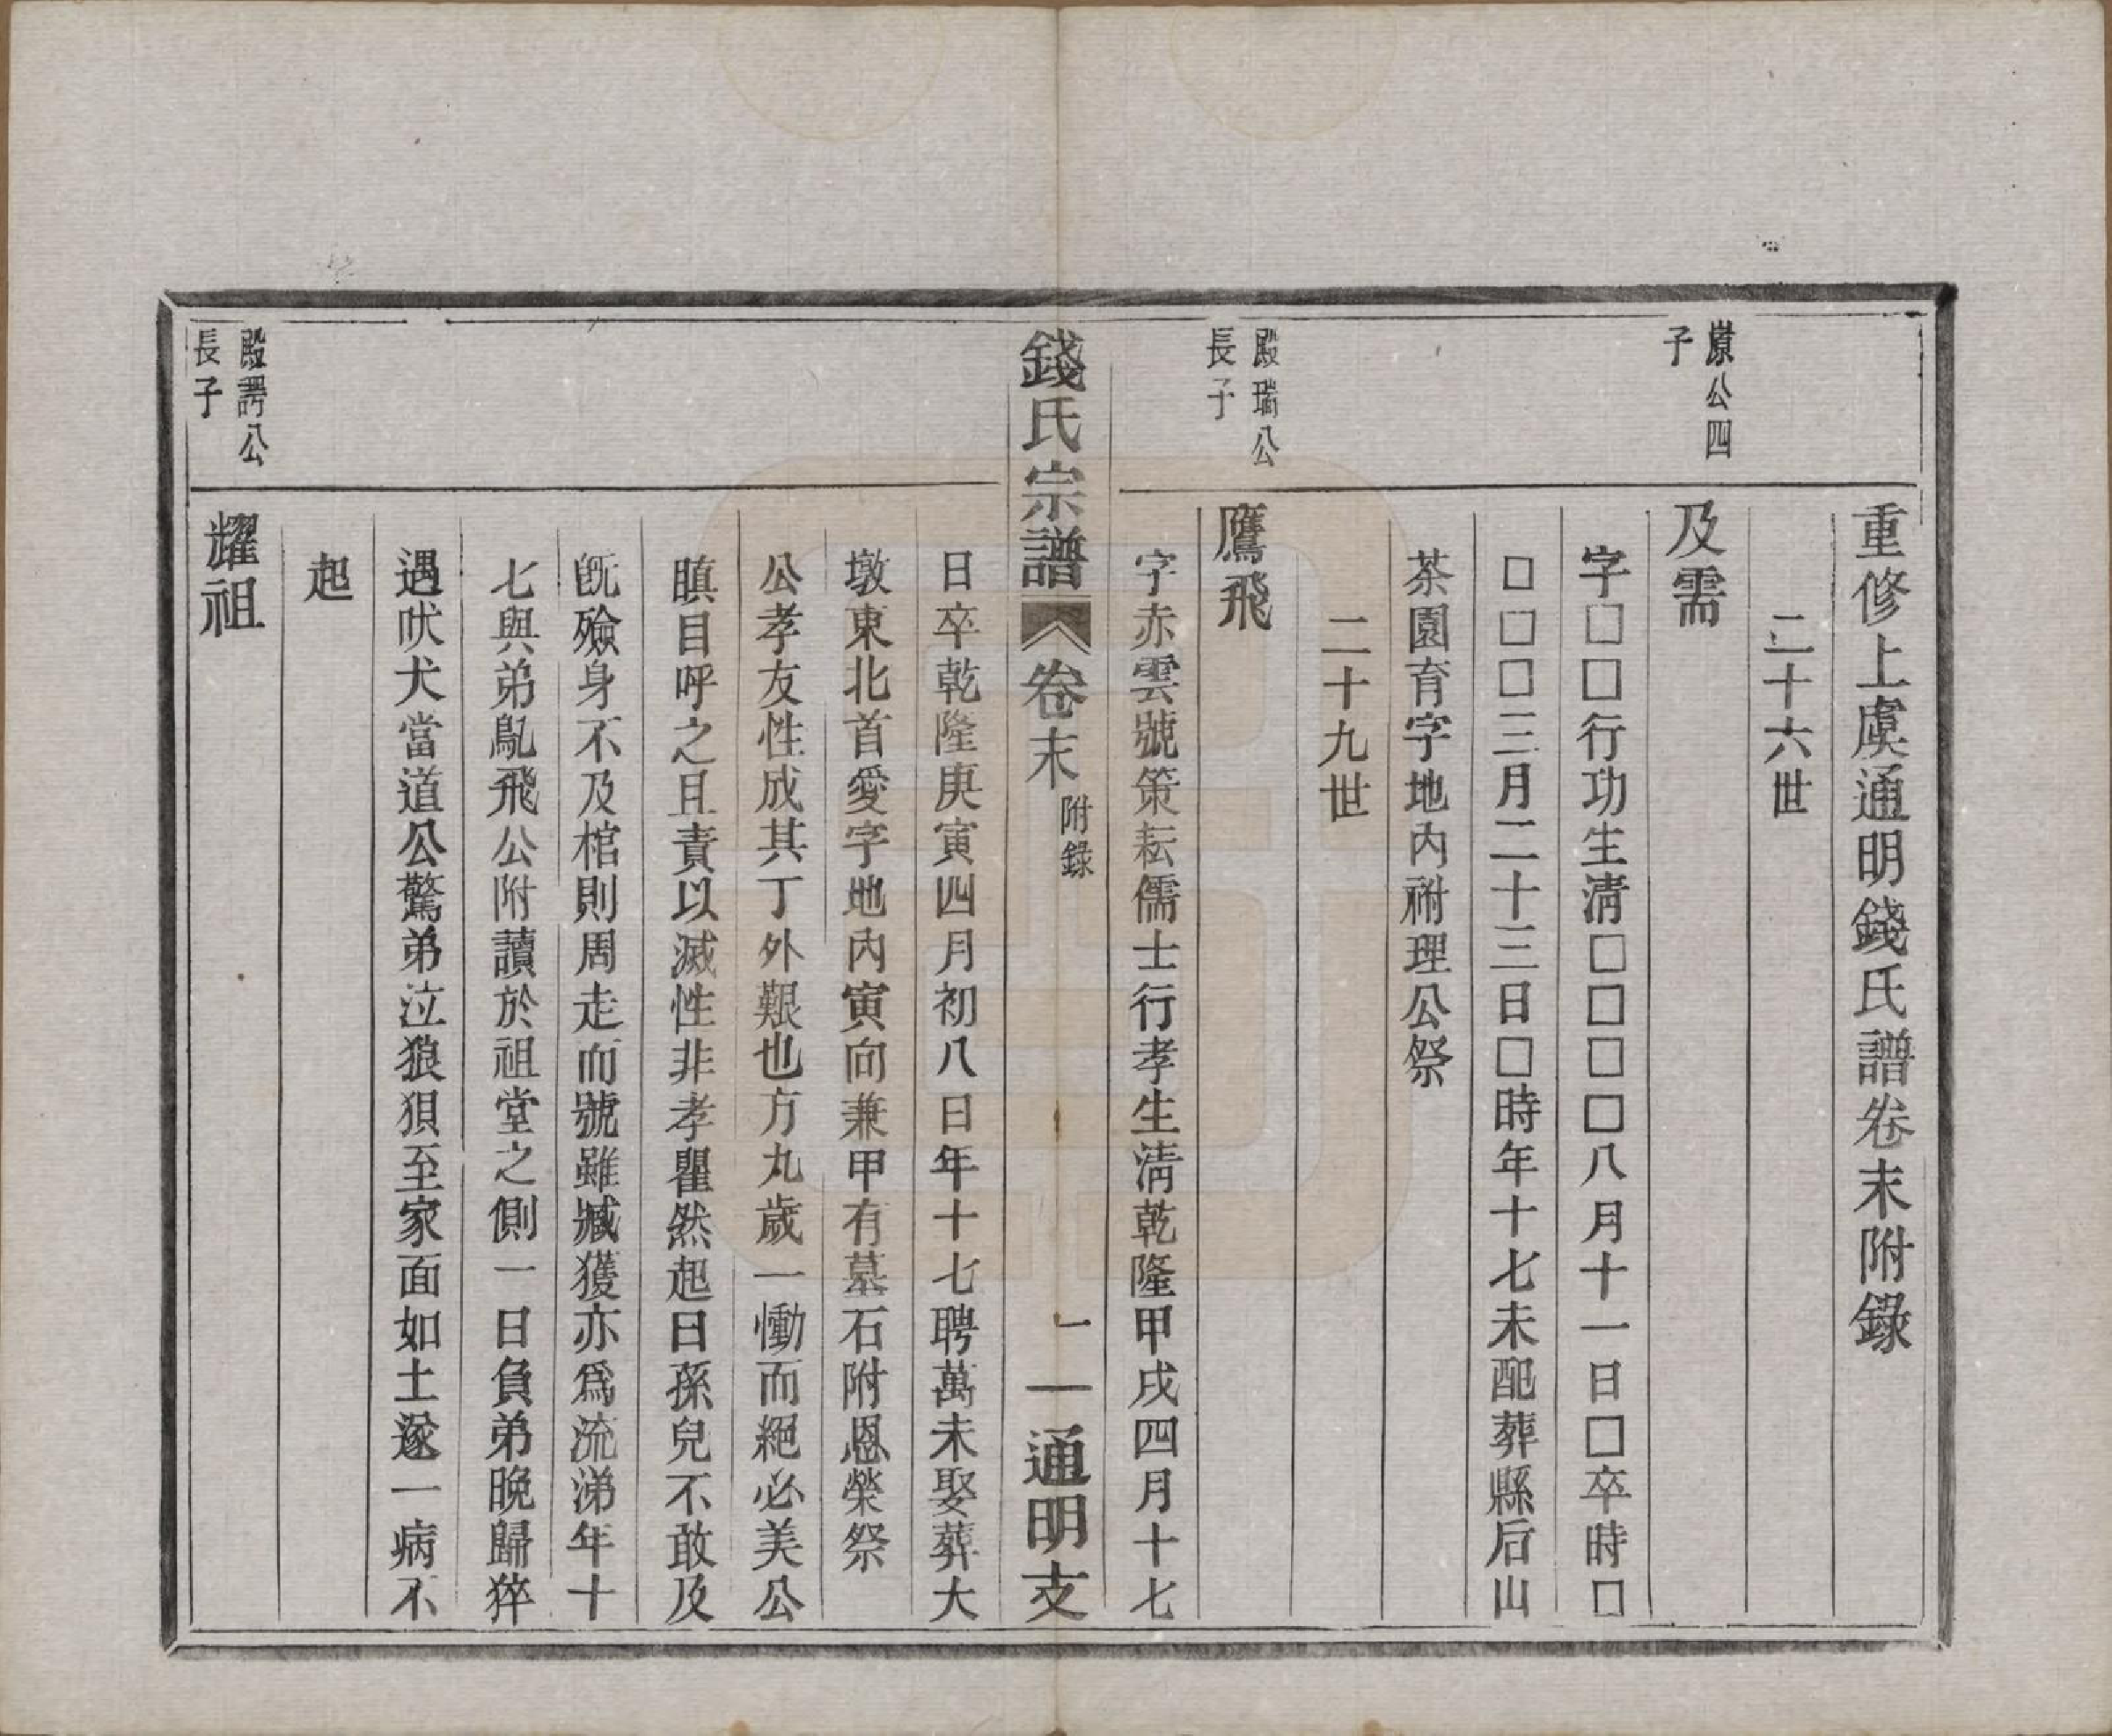 重修上虞通明錢氏譜卷末附錄
二十六世
嵿公四
子
及需
字□□行功生淸□□□□八月十一日□卒時□
□□□三月二十三日□時年十七未配葬縣后山
茶園育字地內祔理公祭
二十九世
殿瑞公
長子
鷹飛
字赤雲號策耘儒士行孝生淸乾隆甲戌四月十七
錢氏宗譜
卷末
附錄
一
通明支
日卒乾隆庚寅四月初八日年十七聘萬未娶葬大
墩東北首愛字地內寅向兼甲有墓石附恩榮祭
公孝友性成其丁外艱也方九歲一慟而絕必美公
瞋目呼之且責以滅性非孝瞿然起曰孫兒不敢及
旣殮身不及棺則周走而號雖臧獲亦爲流涕年十
七與弟鳧飛公附讀於祖堂之側一日負弟晚歸猝
遇吠犬當道公驚弟泣狼狽至家面如土遂一病不
起
殿諤公
長子
耀祖